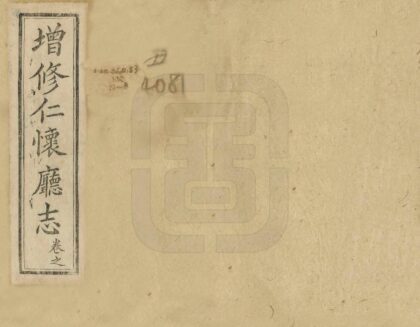 增修仁懷廳志卷之
4081